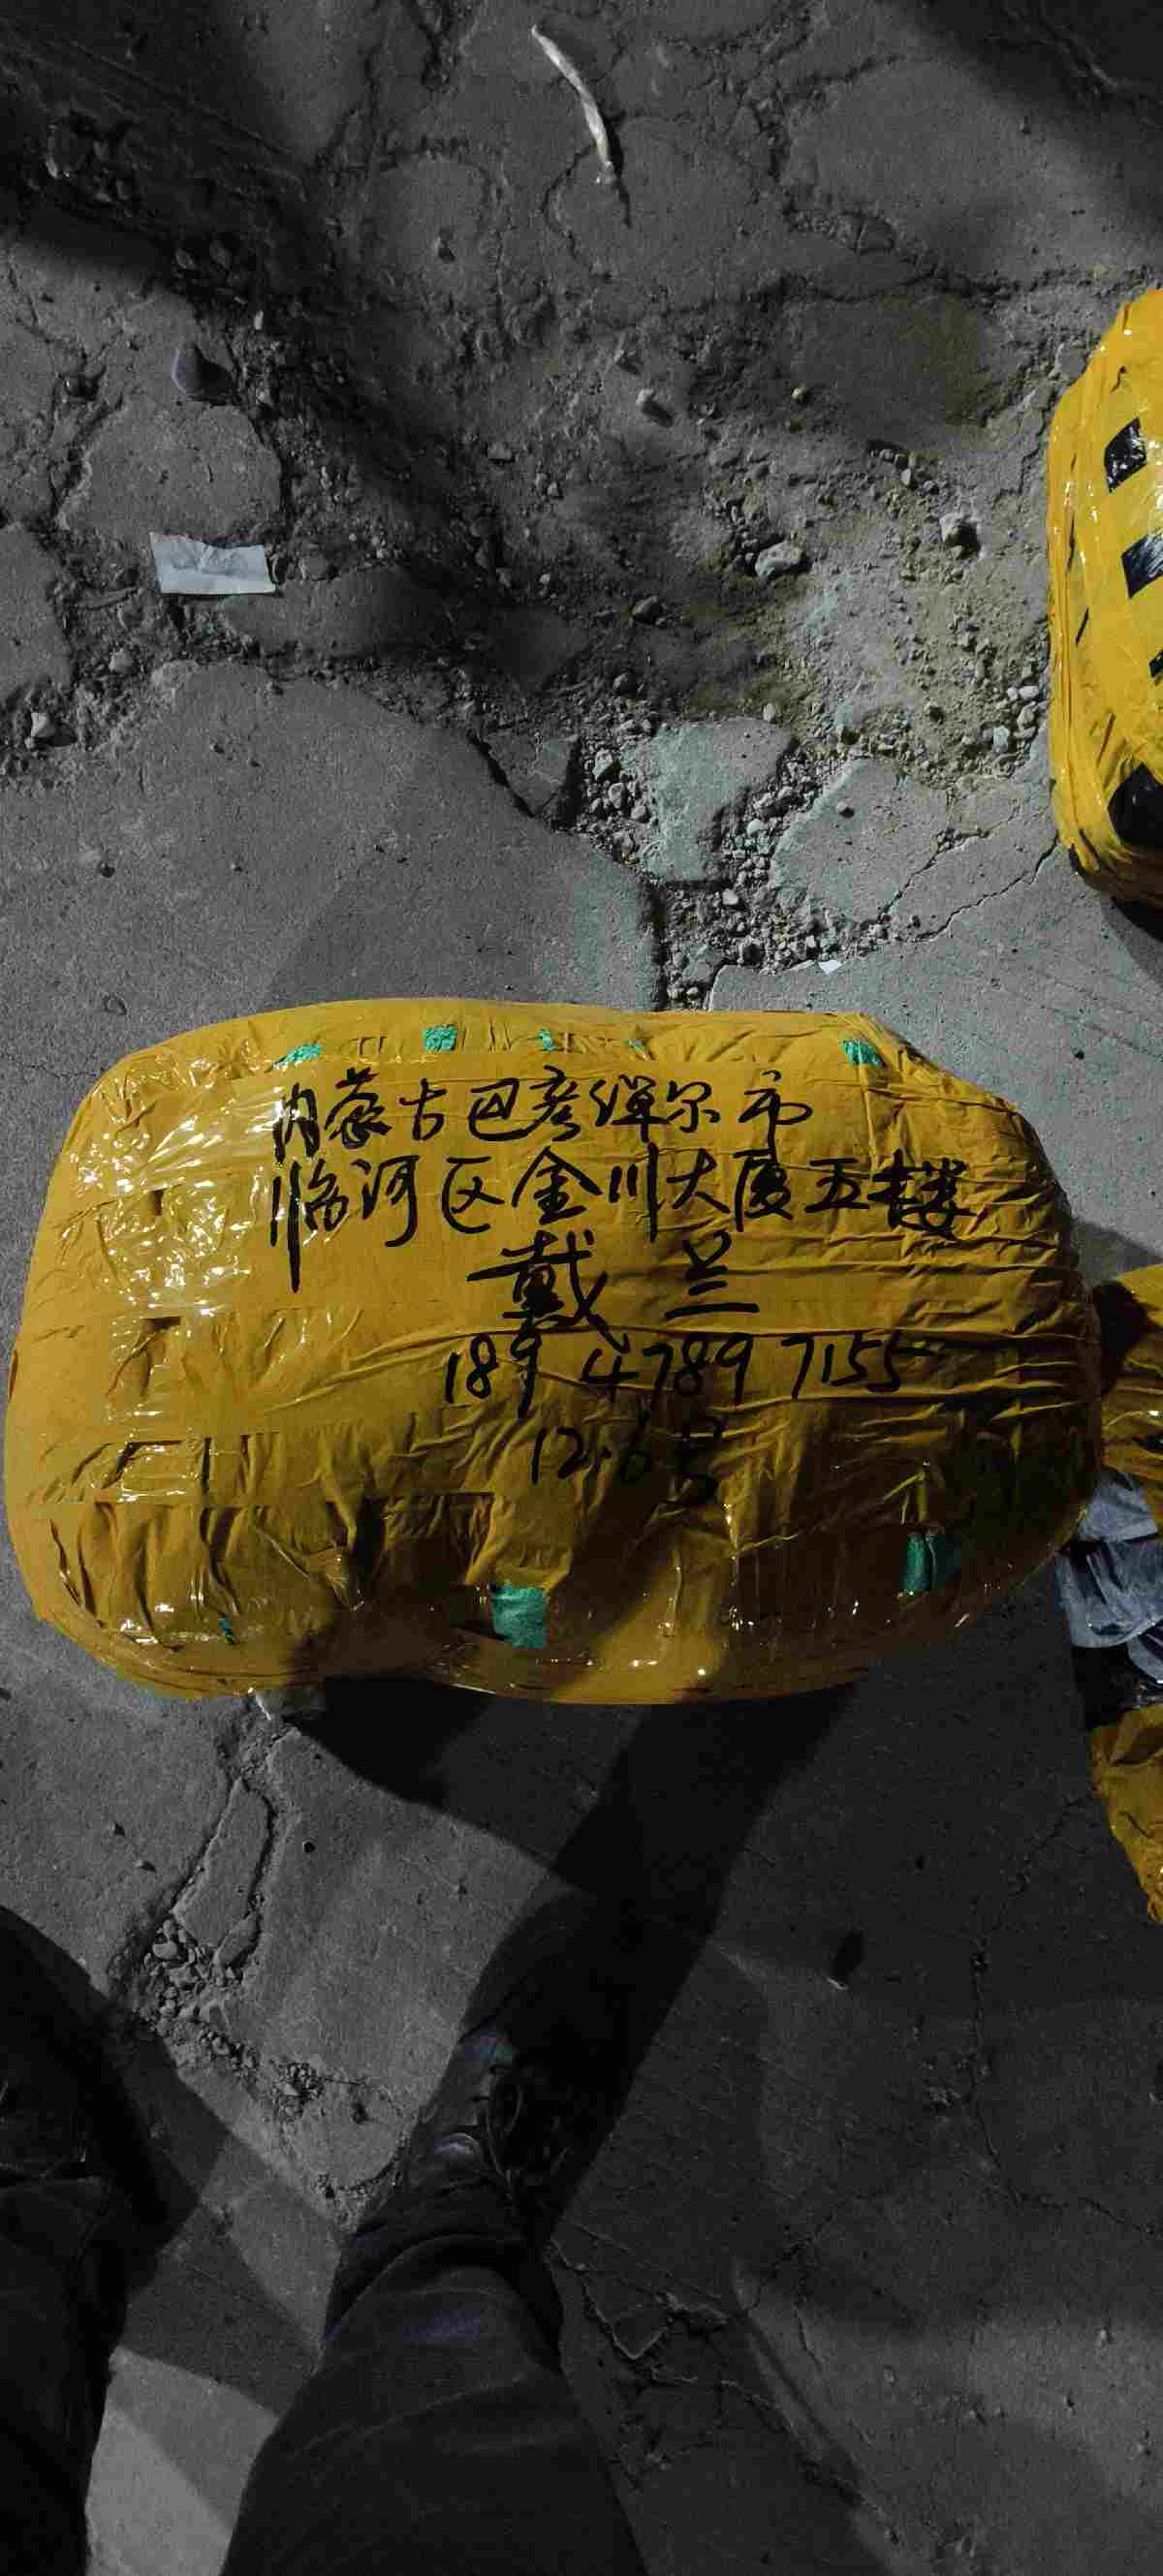 内蒙古巴彦淖尔市
临河区金川大厦五楼
戴兰
189 4789 7155
12.6号